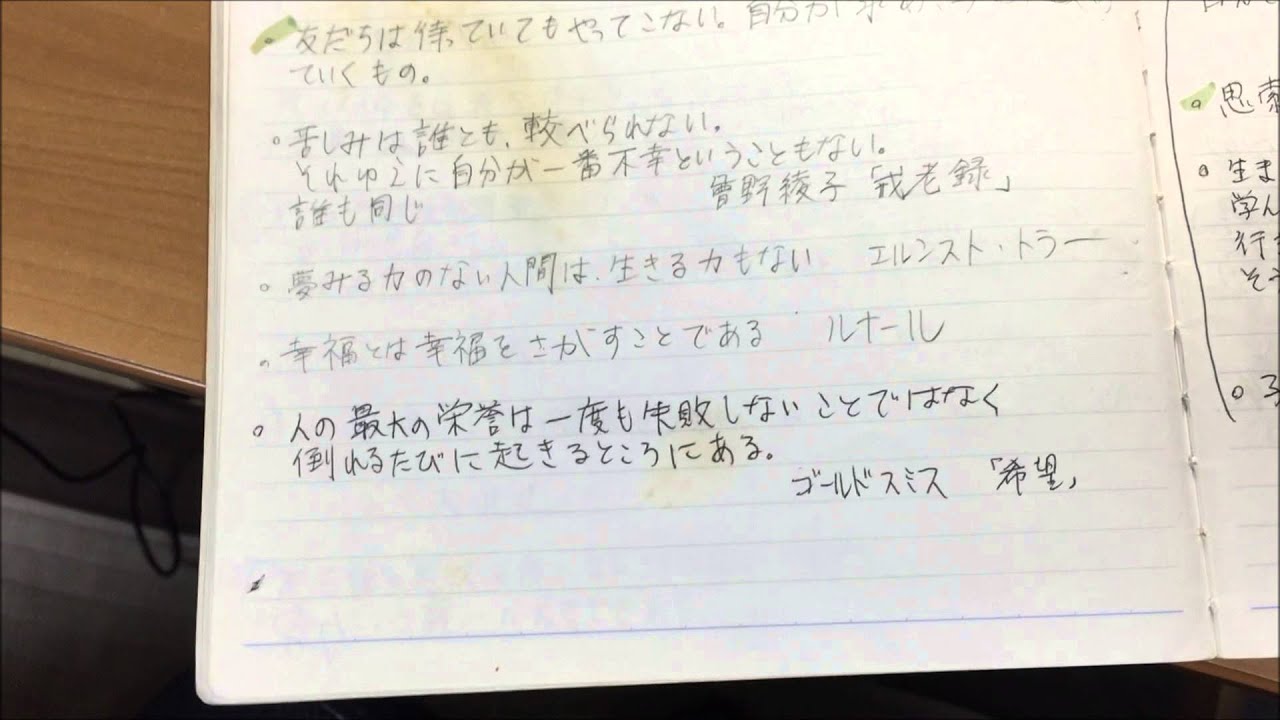 友だちは待っていてもやってこない。自分が
ていくもの。
苦しみは誰とも、較べられない。
それゆえに自分が一番不幸ということもない。
曾野綾子「戒老録」
誰も同じ
夢みる力のない人間は、生きる力もない エルンスト・トラー
幸福とは幸福をさがすことである ルナール
人の最大の栄誉は一度も失敗しないことではなく
倒れるたびに起きるところにある。
ゴールドスミス 「希望」
思索
生ま
学ん
行
そ